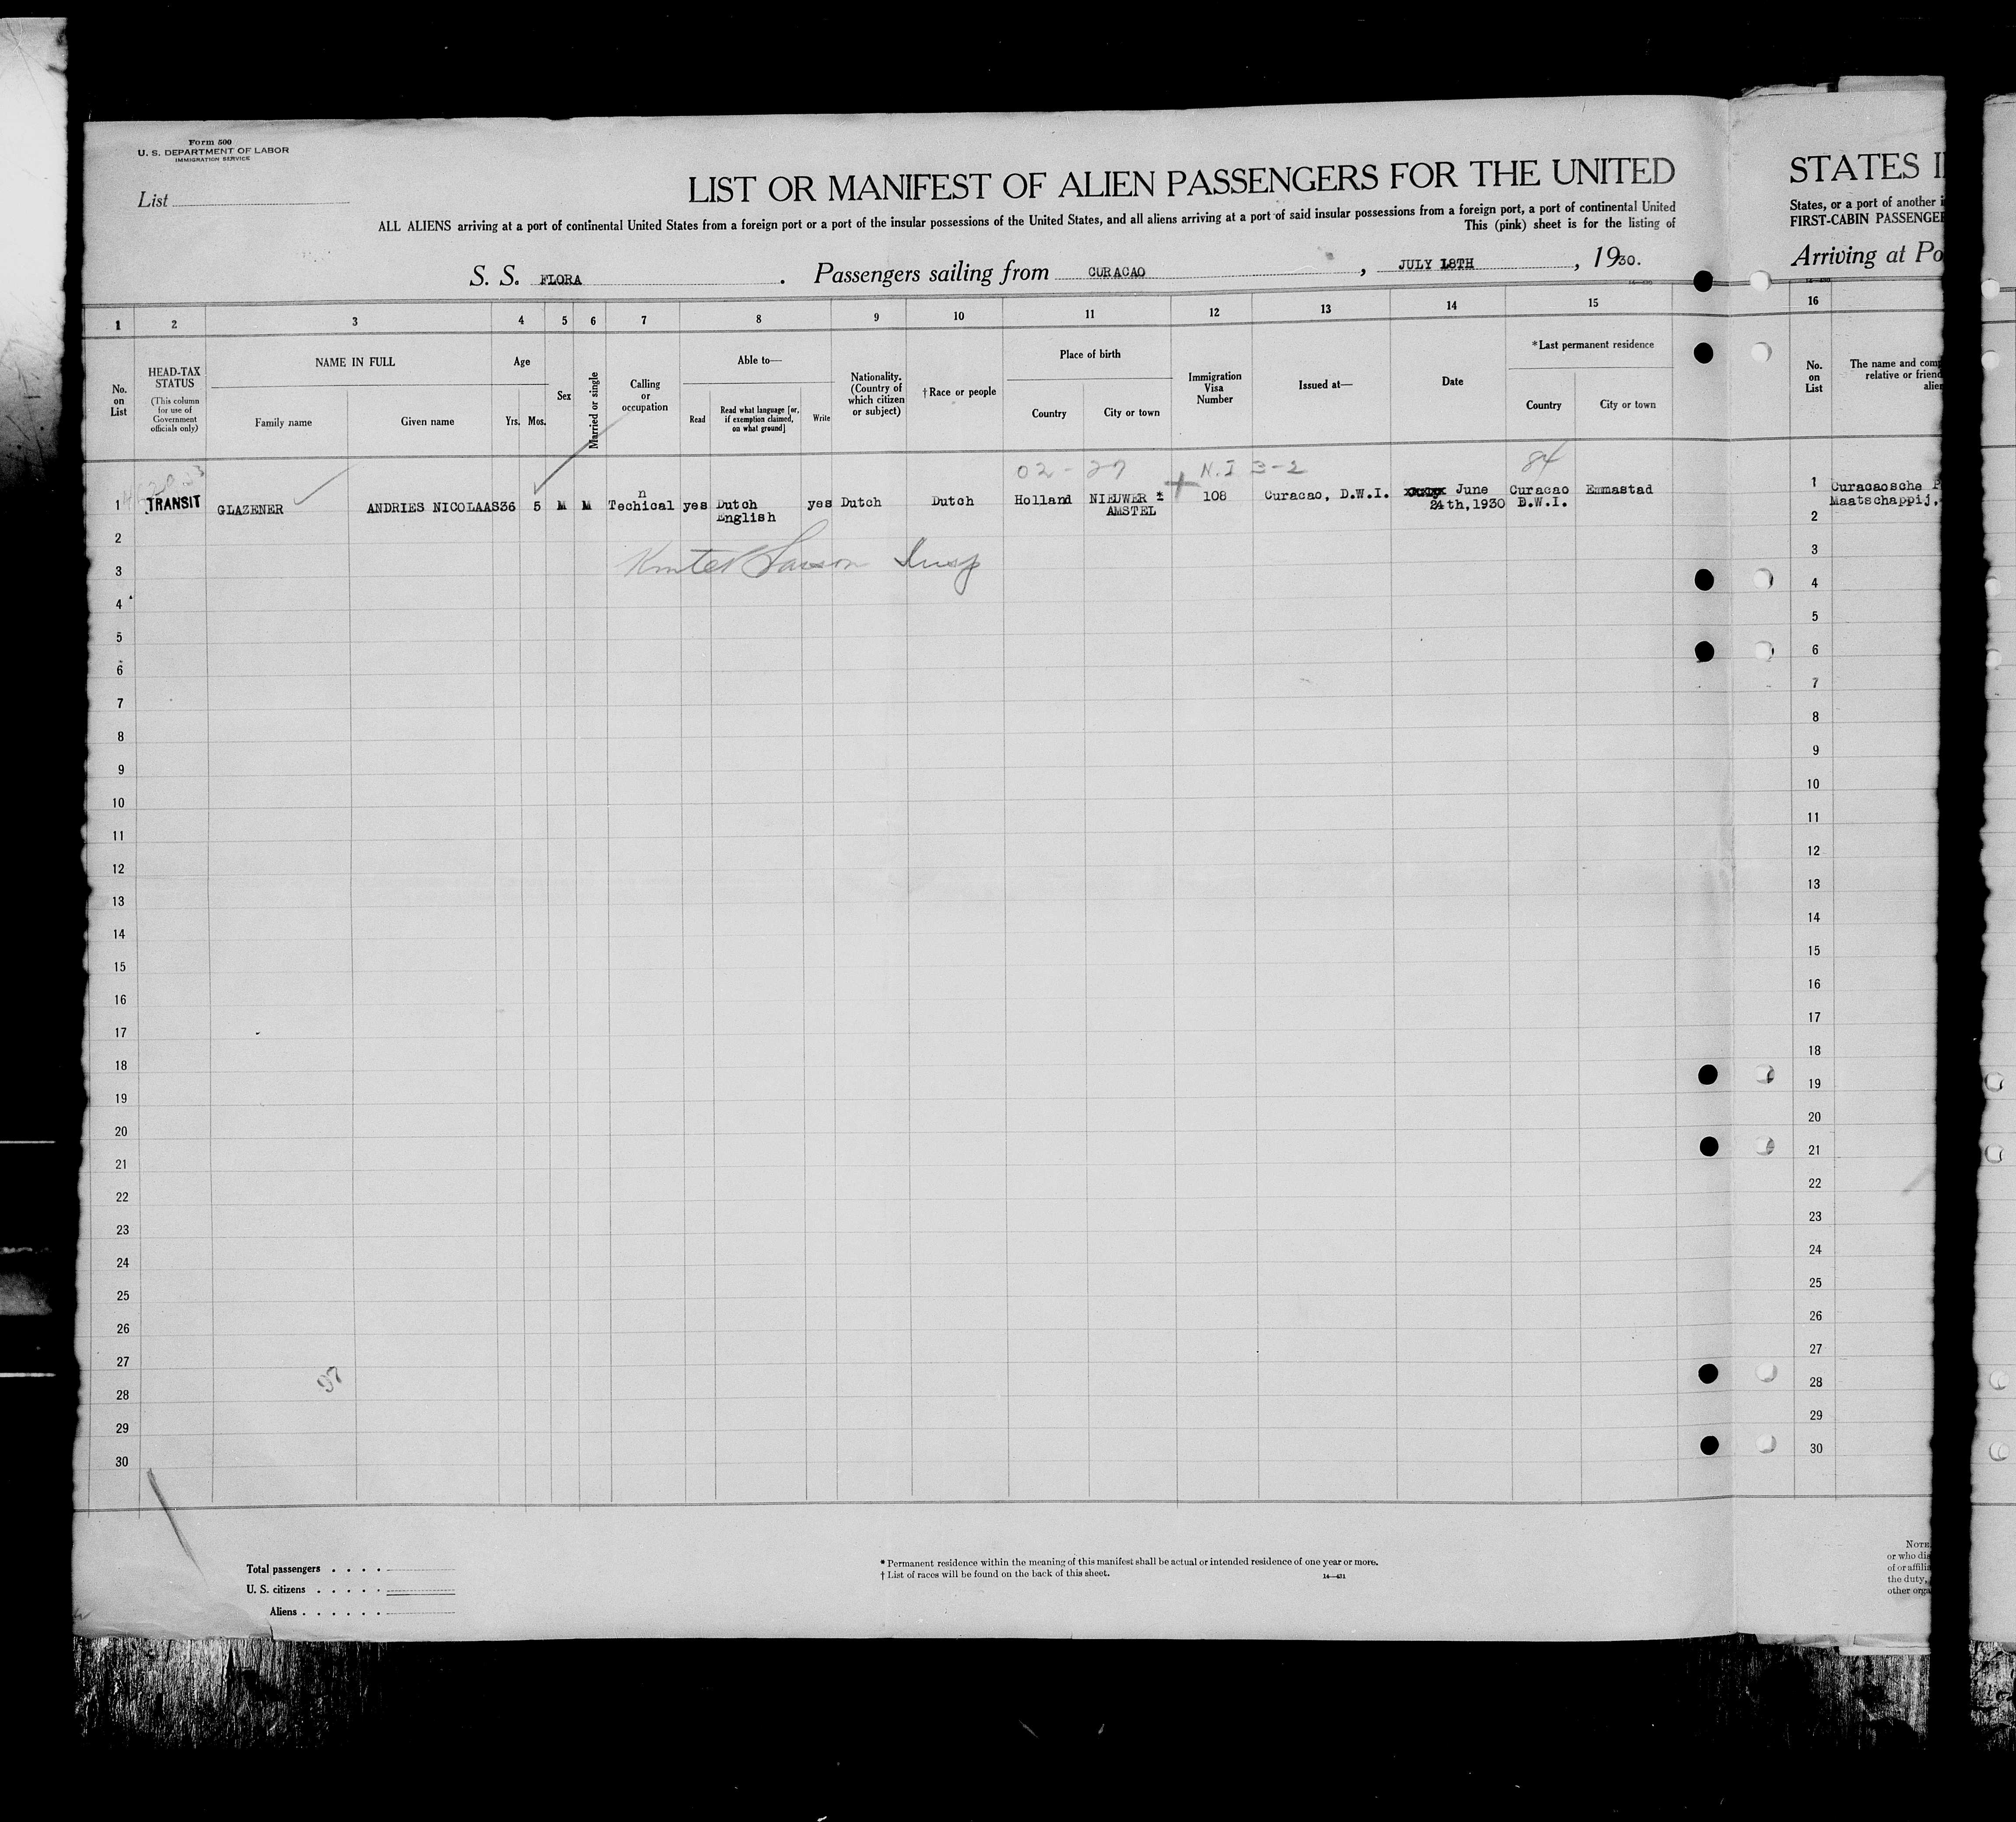 Form 500
U. S. DEPARTMENT OF LABOR
IMMIGRATION SERVICE
List
LIST OR MANIFEST OF ALIEN PASSENGERS FOR THE UNITED
ALL ALIENS arriving at a port of continental United States from a foreign port or a port of the insular possessions of the United States, and all aliens arriving at a port of said insular possessions from a foreign port, a port of continental United
This (pink) sheet is for the listing of
S. S. FLORA . Passengers sailing from CURACAO , JULY 18TH , 1930.
1 2 3 4 5 6 7 8 9 10 11 12 13 14 15
No. on List
HEAD-TAX STATUS
(This column for use of Government officials only)
NAME IN FULL
Family name
Given name
Age
Yrs. Mos.
Sex
Married or single
Calling or occupation
Able to—
Read
Read what language [or, if exemption claimed, on what ground]
Write
Nationality. (Country of which citizen or subject)
† Race or people
Place of birth
Country
City or town
Immigration Visa Number
Issued at—
Date
* Last permanent residence
Country
City or town
02-27 N.I 3-2 84
1 TRANSIT GLAZENER ANDRIES NICOLAAS 36 5 M M Techical yes Dutch yes Dutch Dutch Holland NIEUWER * 108 Curacao, D.W.I. June Curacao Emmastad
n
English AMSTEL 24th,1930 D.W.I.
2
3
Insp
4
5
6
7
8
9
10
11
12
13
14
15
16
17
18
19
20
21
22
23
24
25
26
27
97
28
29
30
Total passengers . . . .
U. S. citizens . . . . .
Aliens . . . . . .
* Permanent residence within the meaning of this manifest shall be actual or intended residence of one year or more.
† List of races will be found on the back of this sheet.
14—431
STATES I
States, or a port of another i
FIRST-CABIN PASSENGE
Arriving at Po
16
No. on List
The name and comp
relative or friend
alien
1 Curacaosche P
Maatschappij,
2
3
4
5
6
7
8
9
10
11
12
13
14
15
16
17
18
19
20
21
22
23
24
25
26
27
28
29
30
NOTE
or who dis
of or affilia
the duty,
other orga